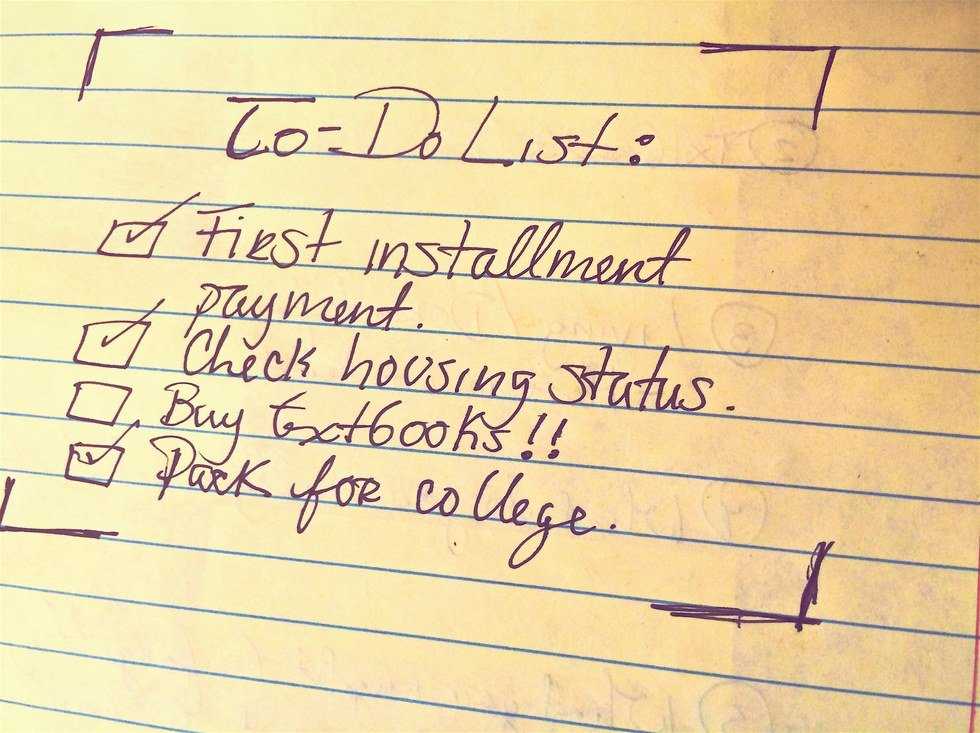 To-Do List:
First installment
payment.
Check housing status.
Buy textbooks!!
Pack for college.